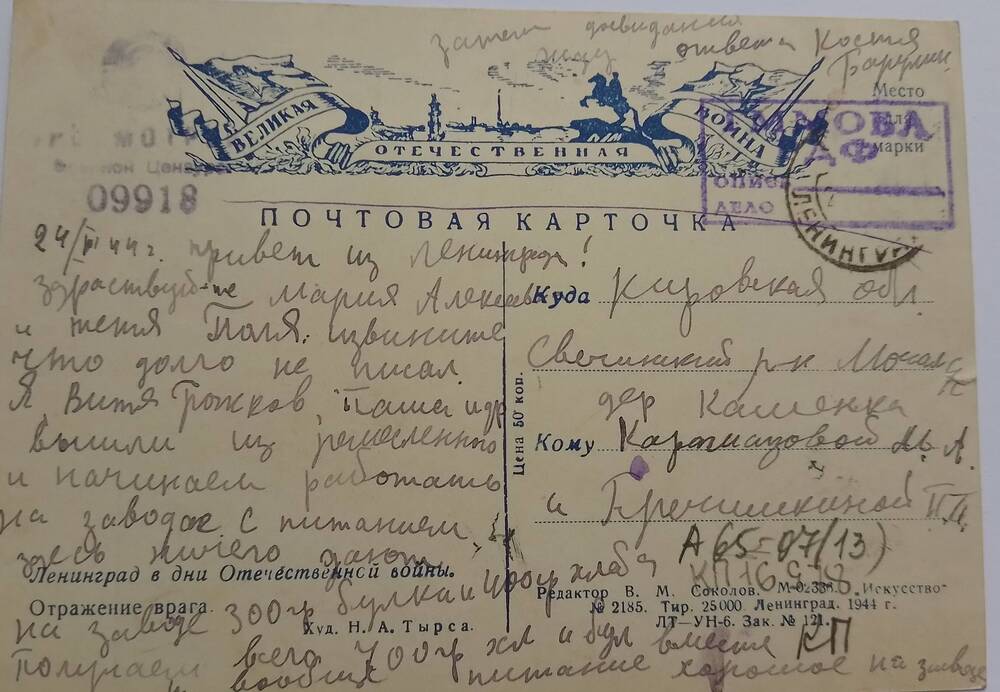 затем довидания
жду ответа Костя
Барулин
Место
для
марки
ВЕЛИКАЯ
ОТЕЧЕСТВЕННАЯ
ВОЙНА
09918
ОПИСЬ
ДЕЛО
ЛЕНИНГРАД
ПОЧТОВАЯ КАРТОЧКА
24/III 44 г. привет из Ленинграда!
здраствуй-те Мария Алексеев
и тетя Поля. извините
что долго не писал.
Я, Витя Грожков, Паша и др
вышли из ремесленного
и начинаем работать
на заводе с питанием
здесь ничего дают
на заводе 300гр булка и 400гр хлеба
Получаем всего 700гр хл и бул вместе
вообщем питание хорошое на заводе
Куда Кировская обл.
Свечинский р-н
дер Каменка
Кому Картацовой М. А.
и Гречишкиной П.П.
Цена 50 коп.
А 65-97/13)
КП
Ленинград в дни Отечественной войны.
Отражение врага.
Худ. Н. А. Тырса.
Редактор В. М. Соколов. М-02338. „Искусство“
№ 2185. Тир. 25000. Ленинград. 1944 г.
ЛТ—УН-6. Зак. № 121.